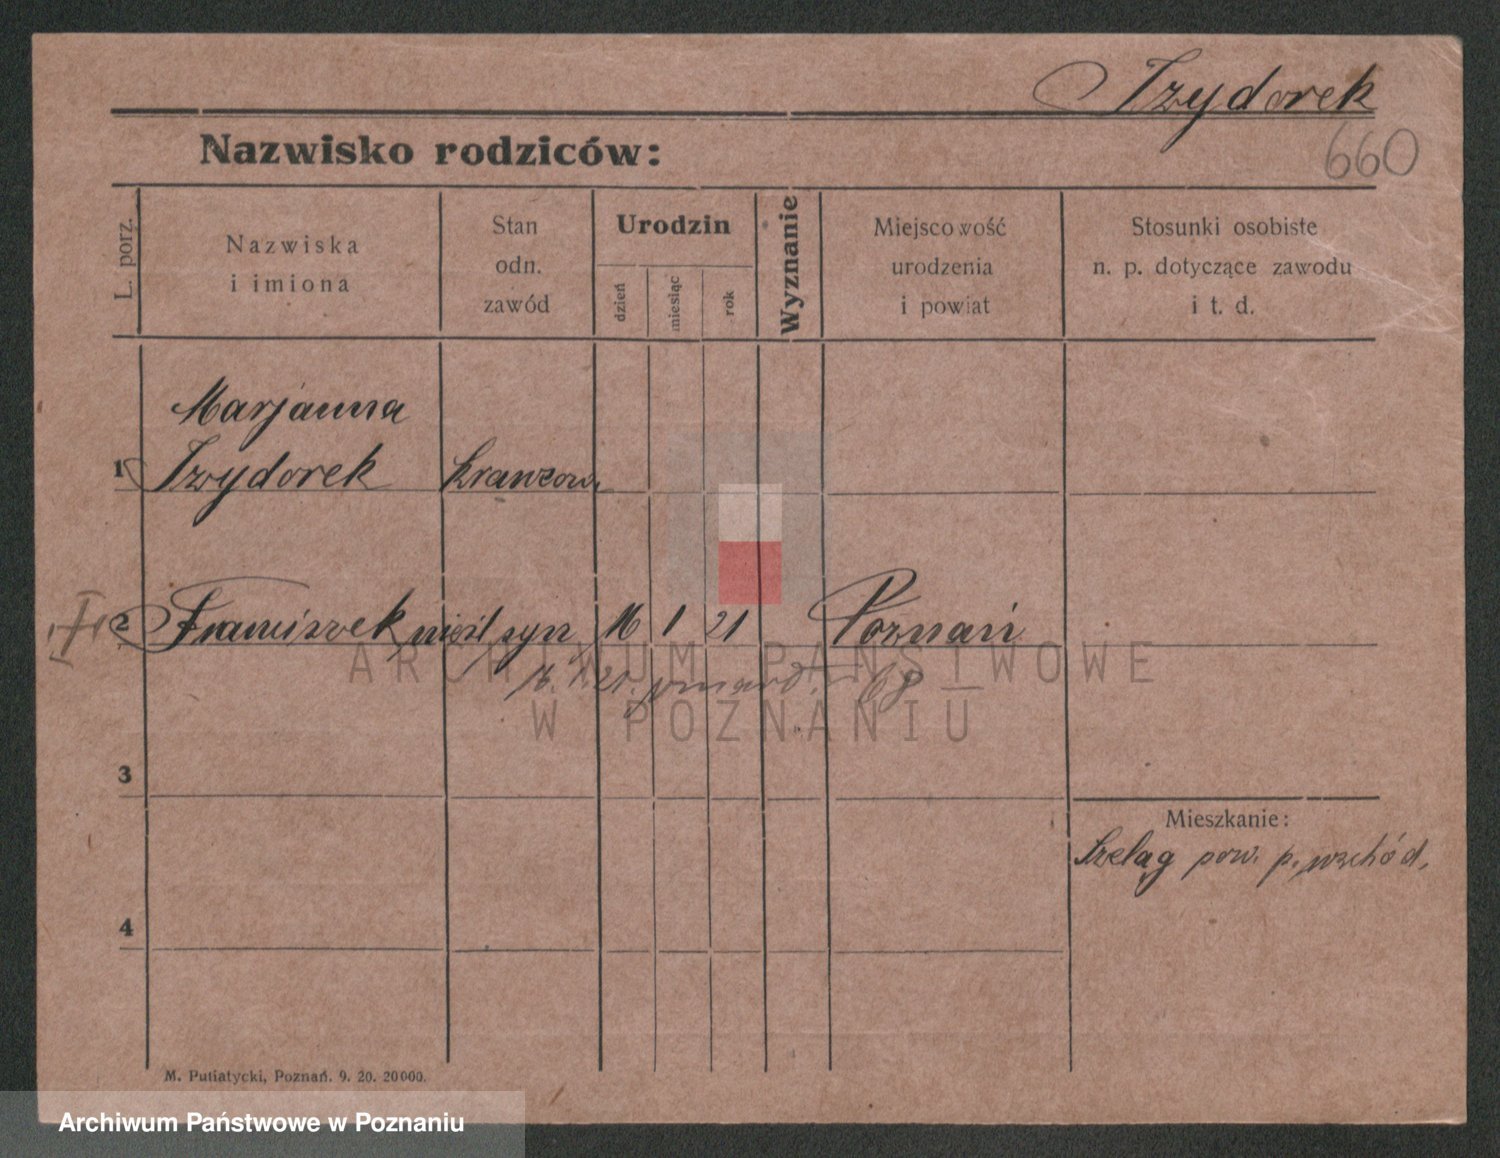 Izydorek
660
Nazwisko rodziców:
L. porz.
Nazwiska
i imiona
Stan
odn.
zawód
Urodzin
dzień
miesiąc
rok
Wyznanie
Miejscowość
urodzenia
i powiat
Stosunki osobiste
n. p. dotyczące zawodu
i t. d.
Marjanna
1 Izydorek krawcow.
2 Franciszek nieśl syn 16 1 21 Poznań
ARCHIWUM PAŃSTWOWE
W POZNANIU
3
Mieszkanie:
Szeląg pow. p. wschód.
4
M. Putiatycki, Poznań. 9. 20. 20000.
Archiwum Państwowe w Poznaniu